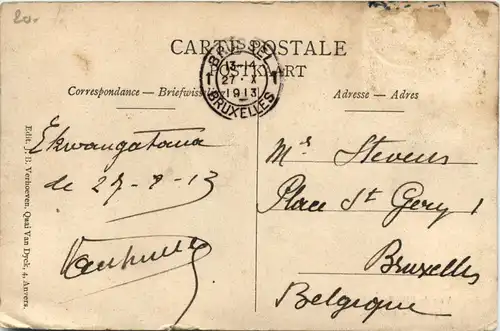 20.
CARTE POSTALE
POSTKAART
Correspondance — Briefwisseling
Adresse — Adres
13-14
27 X
1913
BRUXELLES
Ekwangatana
le 27-8-13
Mr Stevens
Place St Gery 1
Bruxelles
Belgique
Edit. J. B. Verhoeven. Quai Van Dyck, 4, Anvers.